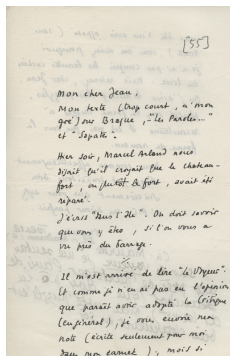 [55]
Mon cher Jean,
Mon texte (trop court, à mon
goût) sur Braque, "les Paroles..."
et "Sopate".
Hier soir, Marcel Arland nous
disait qu'il croyait que le chateau-
fort, ou plutôt le fort, avait été
réparé.
J'écris "dans l'Ile". On doit savoir
que vous y êtes, si l'on vous a
vu près du barrage.
Il m'est arrivé de lire "le Voyeur".
Et comme je n'en ai pas eu l'opinion
que paraît avoir adopté la Critique
(en général), je vous envoie ma
note (écrite seulement pour moi
dans mon carnet); mais si